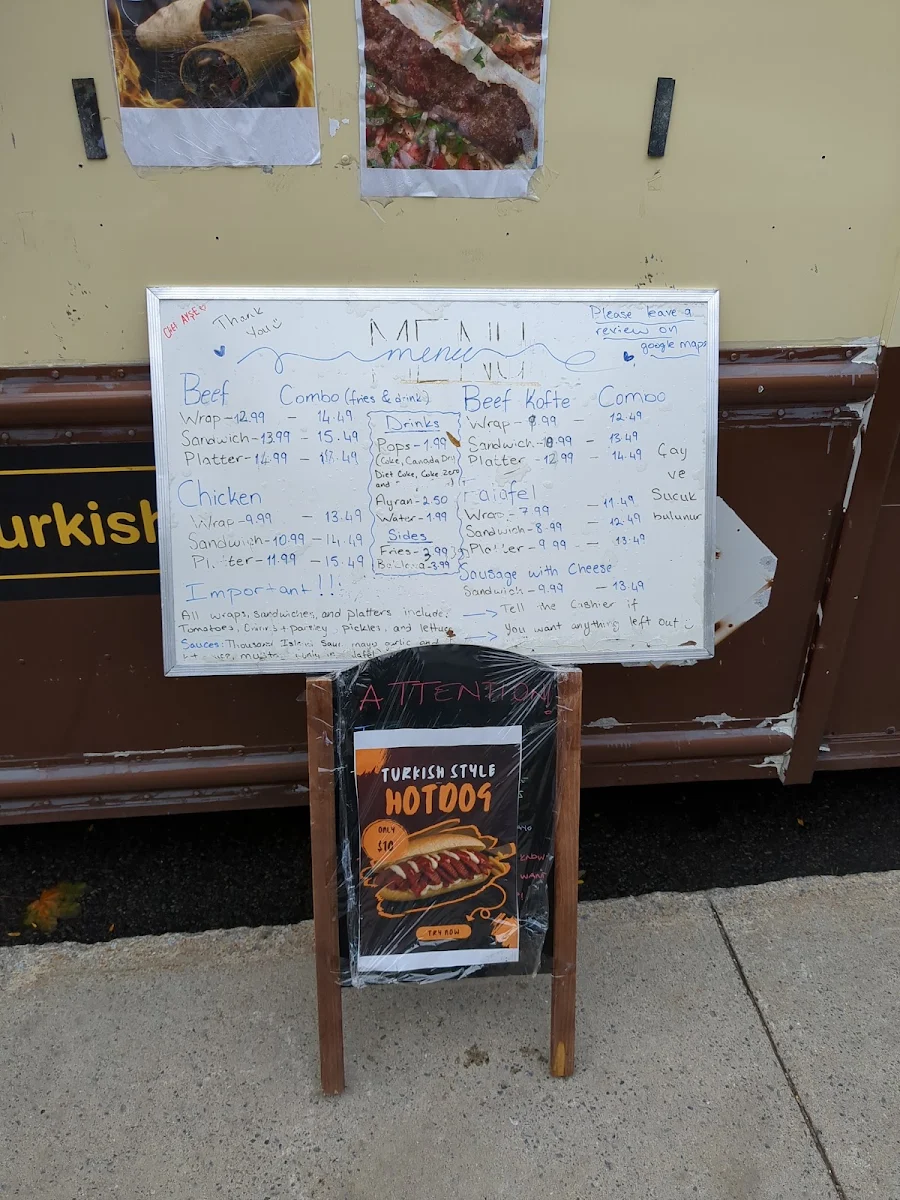 CHEF AYŞE
Thank
You
Please leave a
review on
google maps
MENU
menu
Beef Combo (fries & drink)
Wrap - 12.99 - 14.49
Sandwich - 13.99 - 15.49
Platter - 14.99 -
Chicken
Wrap - 9.99 - 13.49
Sandwich - 10.99 - 14.49
Platter - 11.99 - 15.49
Drinks
Pops - 1.99
(Coke, Canada Dry
Diet Coke, Coke Zero
and
Ayran - 2.50
Water - 1.99
Sides
Fries - 3.99
Baklava - 3.99
Beef Kofte Combo
Wrap - 8.99 - 12.49
Sandwich - 10.99 - 13.49
Platter - 12.99 - 14.49
Falafel
Wrap - 7.99 - 11.49
Sandwich - 8.99 - 12.49
Platter - 9.99 - 13.49
Sausage with Cheese
Sandwich - 9.99 - 13.49
Çay
ve
Sucuk
bulunur
Important!!:
All wraps, sandwiches, and platters include:
Tomatoes, parsley, pickles, and lettuce
→ Tell the Cashier if
→ You want anything left out
Sauces: Thousand Island mayo garlic and
urkish
ATTENTION!
TURKISH STYLE
HOTDOG
ONLY
$10
TRY NOW
KNOW
WANT